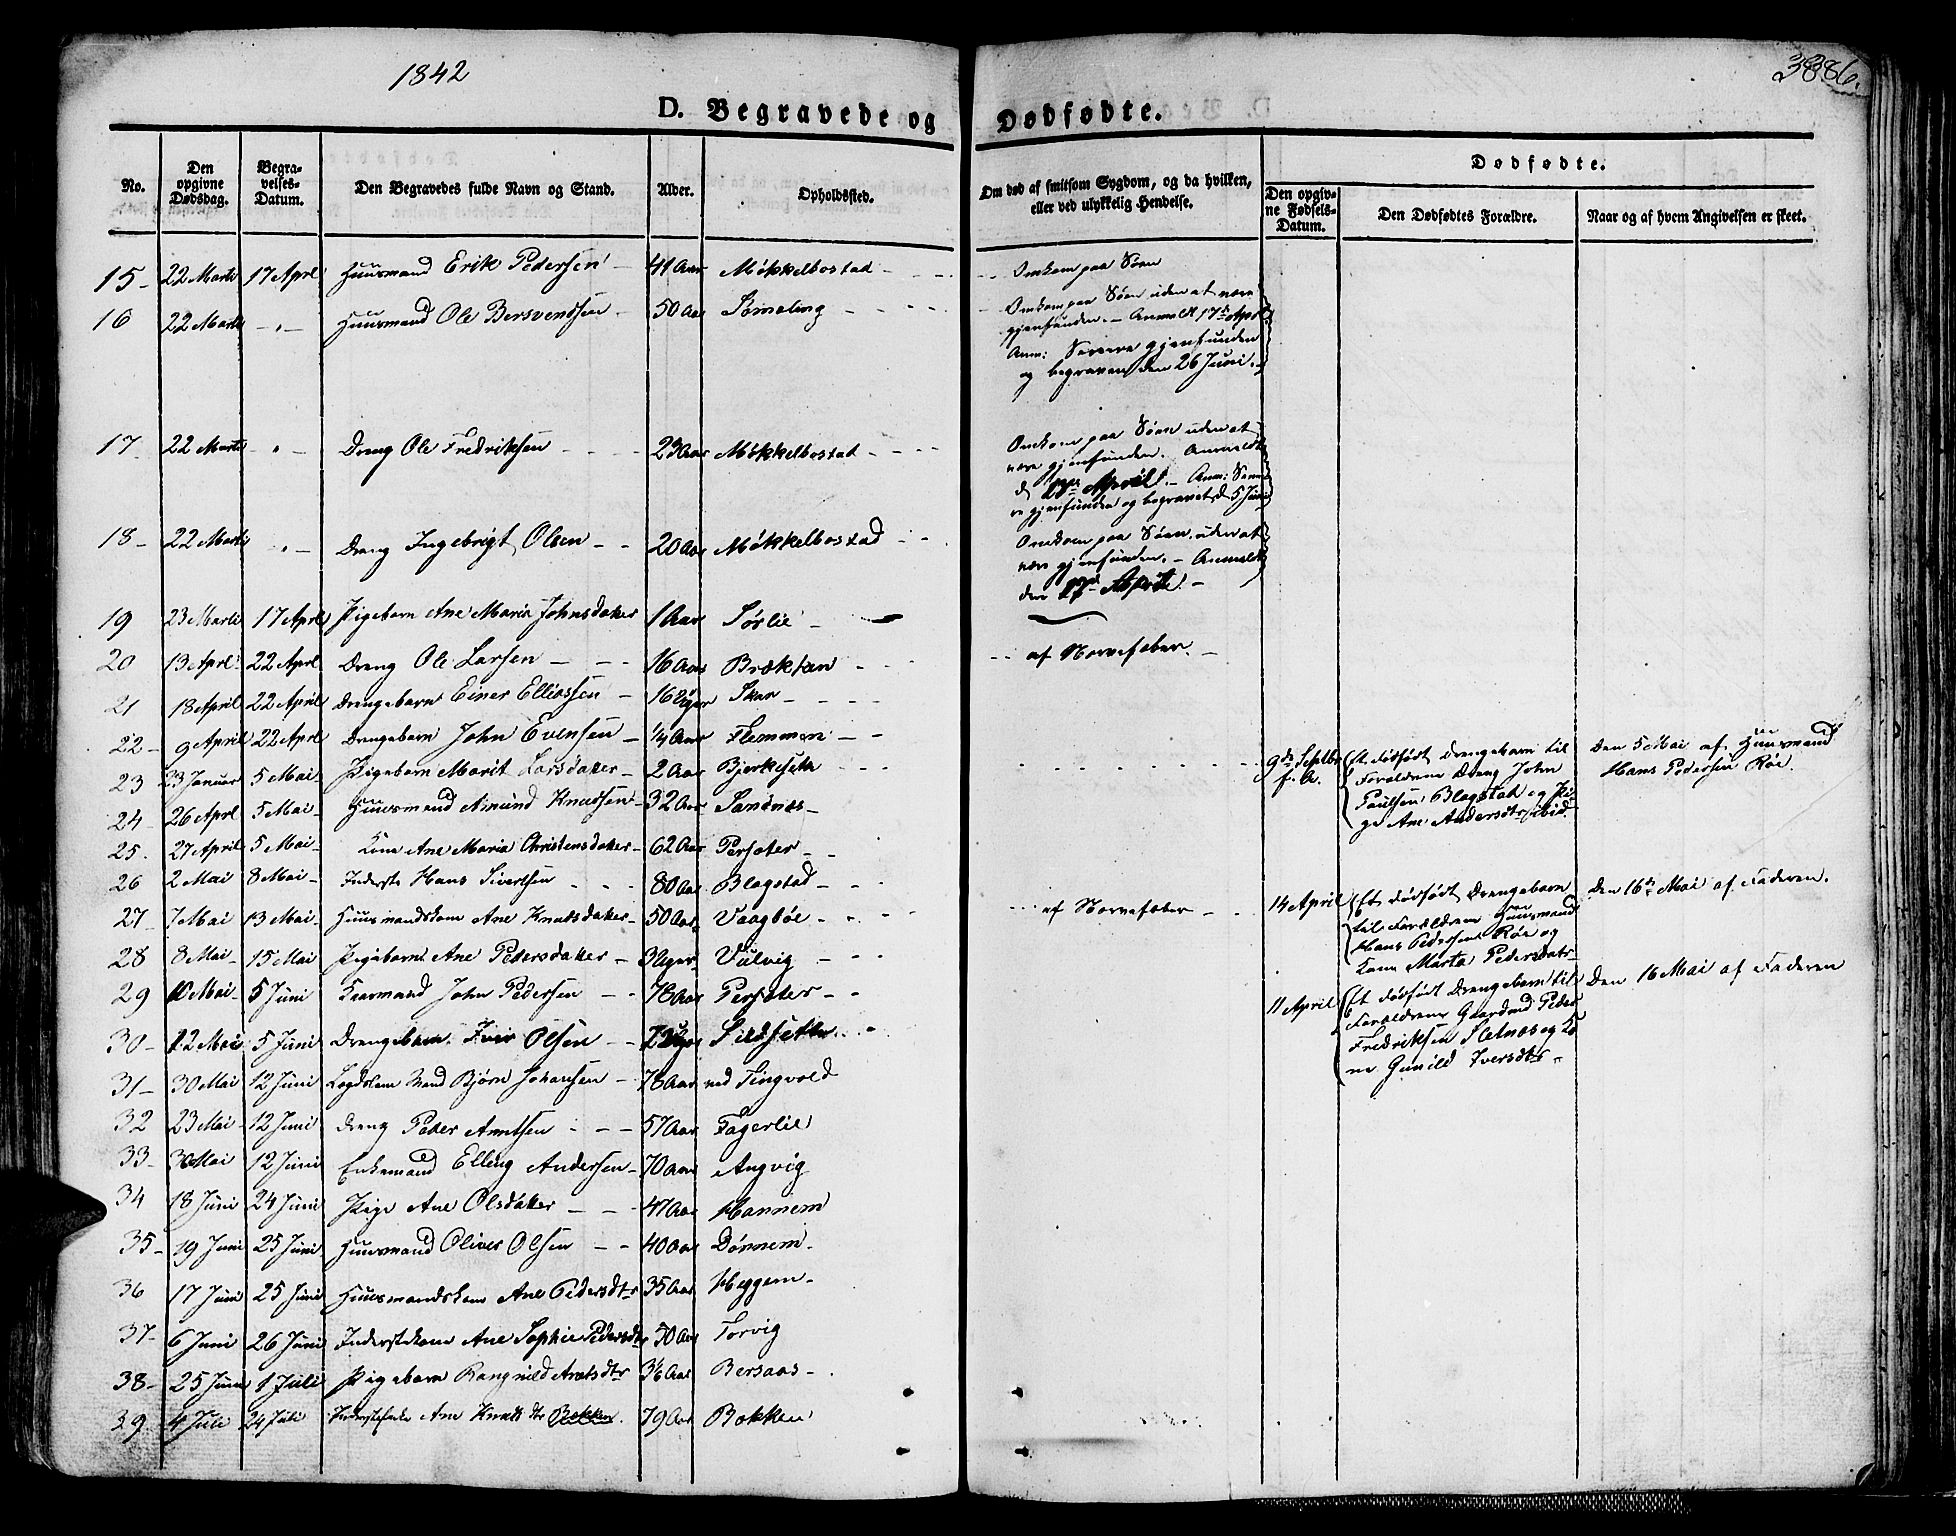 1842
D. Begravede og Dødfødte.
No.
Den opgivne Dødsdag.
Begravelses-Datum.
Den Begravedes fulde Navn og Stand.
Alder.
Opholdssted.
Om død af smitsom Sygdom, og da hvilken, eller ved ulykkelig Hendelse.
Dødfødte.
Den opgivne Fødsels-Datum.
Den Dødfødtes Forældre.
Naar og af hvem Angivelsen er skeet.
15 22 Marti 17 Aprl Huusmand Erik Pedersen 41 Aar Møkkelbostad Omkom paa Søen
16 22 Marti -"- Huusmand Ole Bersvendsen 50 Aar Sømoling Omkom paa Søen uden at være
gjenfunden. - Anmeldt 17de Aprl
Anm: Senere gjenfunden
og begraven den 26 Juni.
17 22 Marti " Dreng Ole Fredriksen 23 Aar Møkkelbostad Omkom paa Søen uden at
være gjenfunden. Anmeldt
d 17de April. - Anm: Sene-
re gjenfunden og begravet d 5 Juni
18 22 Marti -"- Dreng Ingebrigt Olsen 20 Aar Møkkelbostad Omkom paa Søen, uden at
være gjenfunden. - Anmeldt
den 17de April. -
19 23 Marti 17 Aprl Pigebarn Ane Maria Johnsdatter 1 Aar Sørlie
20 13 Aprl 22 Aprl Dreng Ole Larsen 16 Aar Bræktan af Nervefeber.
21 18 April 22 April Drengebarn Einer Elliassen 16 Uger Skar
22 9 April 22 Aprl Drengebarn John Evensen 1/4 Aar Flemmen
23 23 Januar 5 Mai Pigebarn Marit Larsdatter 2 Aar Bjerkeseth
9de Septbr f. A. Et dødfødt Drengebarn til
Forældrene Dreng John
Paulsen Blegstad og Pi-
ge Ane Andersdtr ibid.
Den 5 Mai af Huusmand
Hans Pedersen Røe
24 26 Aprl 5 Mai Huusmand Amund Knudsen 32 Aar Sandnæs
25 27 April 5 Mai Kone Ane Maria Christensdatter 62 Aar Persæter
26 2 Mai 8 Mai Inderste Hans Sivertsen 80 Aar Blegstad
27 7 Mai 13 Mai Huusmandskone Ane Knudsdatter 50 Aar Vaagbøe af Nervefeber
14 April Et dødfødt Drengebarn
til Forældrene Huusmand
Hans Pedersen Røe og
Kone Marta Pedersdatr
Den 16de Mai af Faderen.
28 8 Mai 15 Mai Pigebarn Ane Pedersdatter 3 Uger Vulvig
29 10 Mai 5 Juni Kaarmand John Pedersen 78 Aar Persæter
11 April Et dødfødt Drengebarn til
Forældrene Gaardmd Peder
Fredriksen Stelnæs og Ko-
ne Gunild Iversdtr
Den 16 Mai af Faderen
30 12 Mai 5 Juni Drengebarn Iver Olsen Uger Sildsetter
31 30 Mai 12 Juni Lægdslem Mand Bjørn Johansen 78 Aar ved Tingvold
32 23 Mai 12 Juni Dreng Peder Arntsen 57 Aar Fagerlie
33 30 Mai 12 Juni Enkemand Elling Andersen 70 Aar Angvig
34 18 Juni 24 Juni Pige Ane Olsdatter 47 Aar Hannem
35 19 Juni 25 Juni Huusmand Oliver Olsen 40 Aar Dønnem
36 17 Juni 25 Juni Huusmandskone Ane Pedersdtr 35 Aar Heggem
37 6 Juni 26 Juni Inderstkone Ane Sophie Pedersdtr 50 Aar Torvig
38 25 Juni 1 Juli Pigebarn Rangnild Aretsdtr 3/6 Aar Bersaas
39 4 Juli 24 Juli Ane Knuts dtr Bokken 79 Aar Bokken